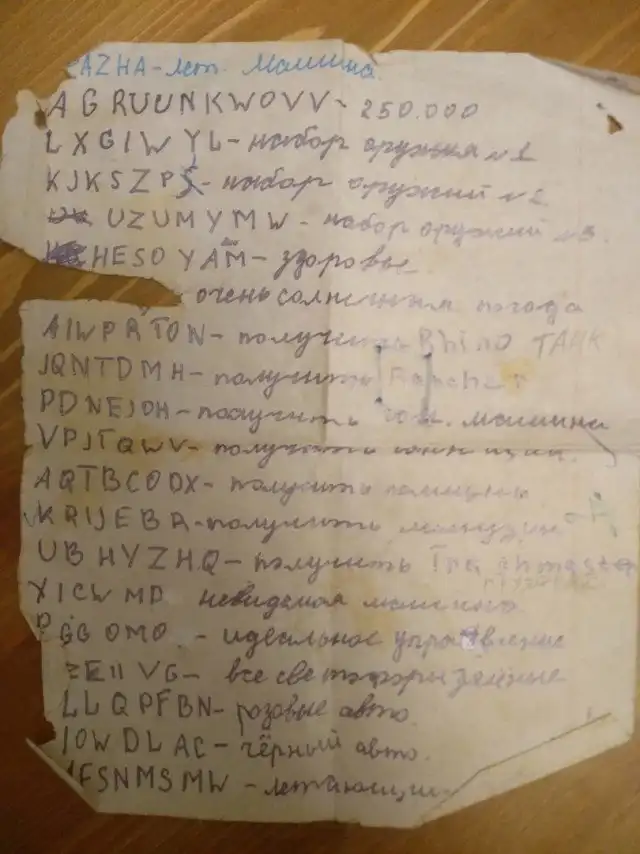 AZHA - лет. машина
AGRUUNKWOVV - 250.000
LXGIWYL - набор оружия №1
KJKSZPS - набор оружий №2
UZUMYMW - набор оружий №3
HESOYAM - здоровье
очень солнечная погода
AIWPRTON - получить Rhino TANK
JQNTDMH - получить Rancher
PDNEJOH - получить гон. машина
VPJTQWV - получить
AQTBCODX - получить
KRIJEBR - получить
UBHYZHQ - получить
YICWMD невидемая машина
GGOMO - идеальное управление
ZEIIVG - все светофоры зелёные
LLQPFBN - розовые авто
IOWDLAC - чёрный авто.
FSNMSMW - летающий